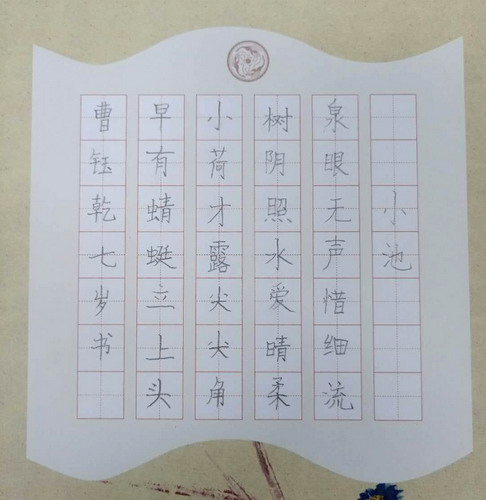 小池
泉眼无声惜细流
树阴照水爱晴柔
小荷才露尖尖角
早有蜻蜓立上头
曹钰乾七岁书